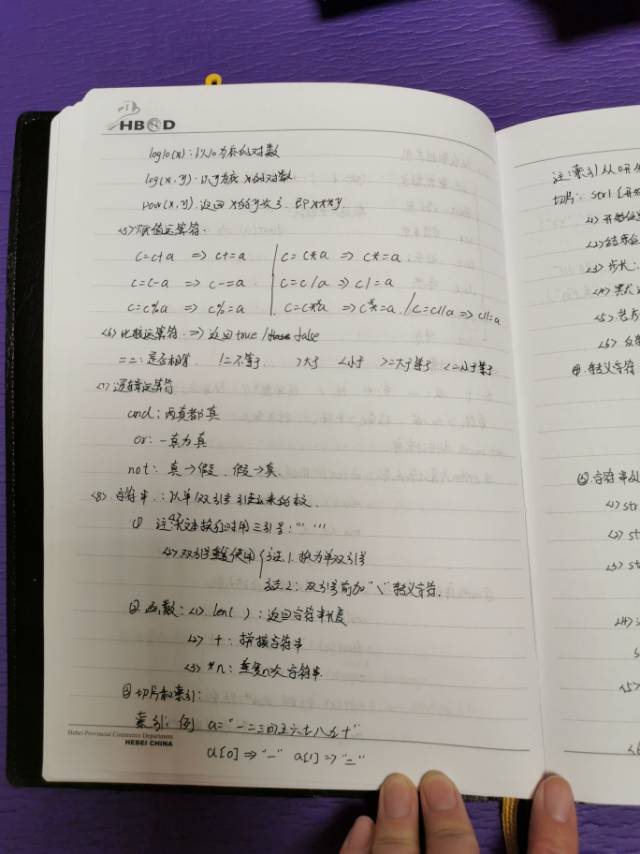 HB D
log10(x): 以10为底的对数
log(x,y): 以y为底x的对数
pow(x,y): 返回x的y次方. 即x**y
<5>赋值运算符.
c=c+a => c+=a c=c*a => c*=a.
c=c-a => c-=a c=c/a => c/=a
c=c%a => c%=a c=c**a => c**=a. c=c//a => c//=a
<6>比较运算符 => 返回true/false
==: 是否相等. !=不等于. >大于 <小于 >=大于等于 <=小于等于
<7>逻辑运算符
and: 两真都真
or: 一真为真
not: 真→假. 假→真.
<8>字符串: 以单/双引号引起来的文.
① 注: 换行时用三引号: ''' '''
双引号重复使用 方法1. 换为单双引号
方法2: 双引号前加"\"转义字符.
② 函数: <1>. len( ): 返回字符串长度
<2> +: 拼接字符串
<3> *n: 重复n次字符串.
③ 切片和索引:
索引: 例 a="一二三四五六七八九十"
a[0] => "一" a[1] => "二"
Hebei Provincial Commerce Department
HEBEI CHINA
注: 索引从0开
切片: str1[开始
<1> 开始位
<2> 结束位
<3> 步长:
<4>
<5>
<6>
④ 转义字符
⑤. 字符串
<1> str
<2> st
<3> st
<4>
s
<5>
<6>